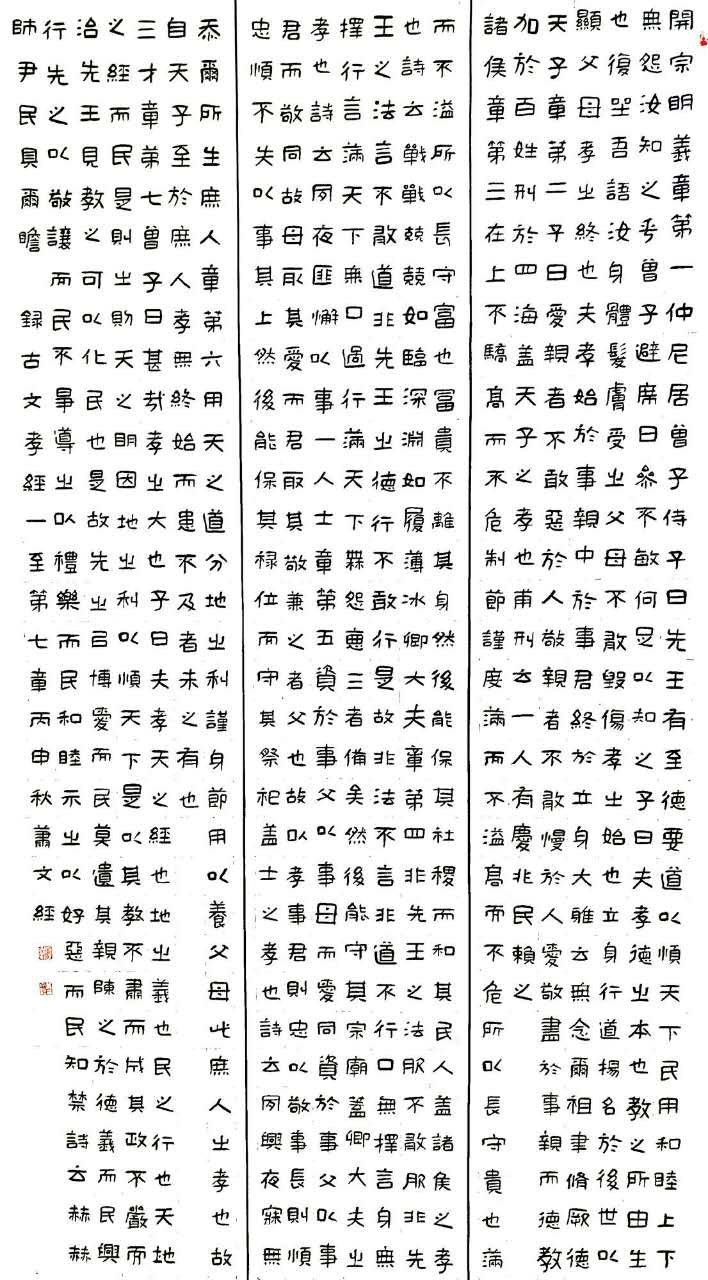 開宗明義章第一仲尼居曾子侍子曰先王有至德要道以順天下民用和睦上下
無怨汝知之乎曾子避席曰參不敏何足以知之子曰夫孝德之本也教之所由生
也復坐吾語汝身體髮膚受之父母不敢毀傷孝之始也立身行道揚名於後世以
顯父母孝之終也夫孝始於事親中於事君終於立身大雅云無念爾祖聿脩厥德
天子章第二子曰愛親者不敢惡於人敬親者不敢慢於人愛敬盡於事親而德教
加於百姓刑於四海盖天子之孝也甫刑云一人有慶兆民賴之
諸侯章第三在上不驕髙而不危制節謹度滿而不溢髙而不危所以長守貴也滿
而不溢所以長守富也冨貴不離其身然後能保其社稷而和其民人盖諸侯之孝
也詩云戰戰兢兢如臨深淵如履薄冰卿大夫章第四非先王之法服不敢服非先
王之法言不敢道非先王之德行不敢行是故非法不言非道不行口無擇言身無
擇行言滿天下無口過行滿天下無怨惡三者備矣然後能守其宗廟蓋卿大夫之
孝也詩云夙夜匪懈以事一人士章第五資於事父以事母而愛同資於事父以事
君而敬同故母取其愛而君取其敬兼之者父也故以孝事君則忠以敬事長則順
忠順不失以事其上然後能保其祿位而守其祭祀盖士之孝也詩云夙興夜寐無
忝爾所生庶人章第六用天之道分地之利謹身節用以養父母此庶人之孝也故
自天子至於庶人孝無終始而患不及者未之有也
三才章第七曾子曰甚哉孝之大也子曰夫孝天之經也地之義也民之行也天地
之經而民是則之則天之明因地之利以順天下是以其教不肅而成其政不嚴而
治先王見教之可以化民也是故先之以博愛而民莫遺其親陳之於德義而民興
行先之以敬讓而民不爭導之以禮樂而民和睦示之以好惡而民知禁詩云赫赫
師尹民具爾瞻 録古文孝經一至第七章丙申秋蕭文經